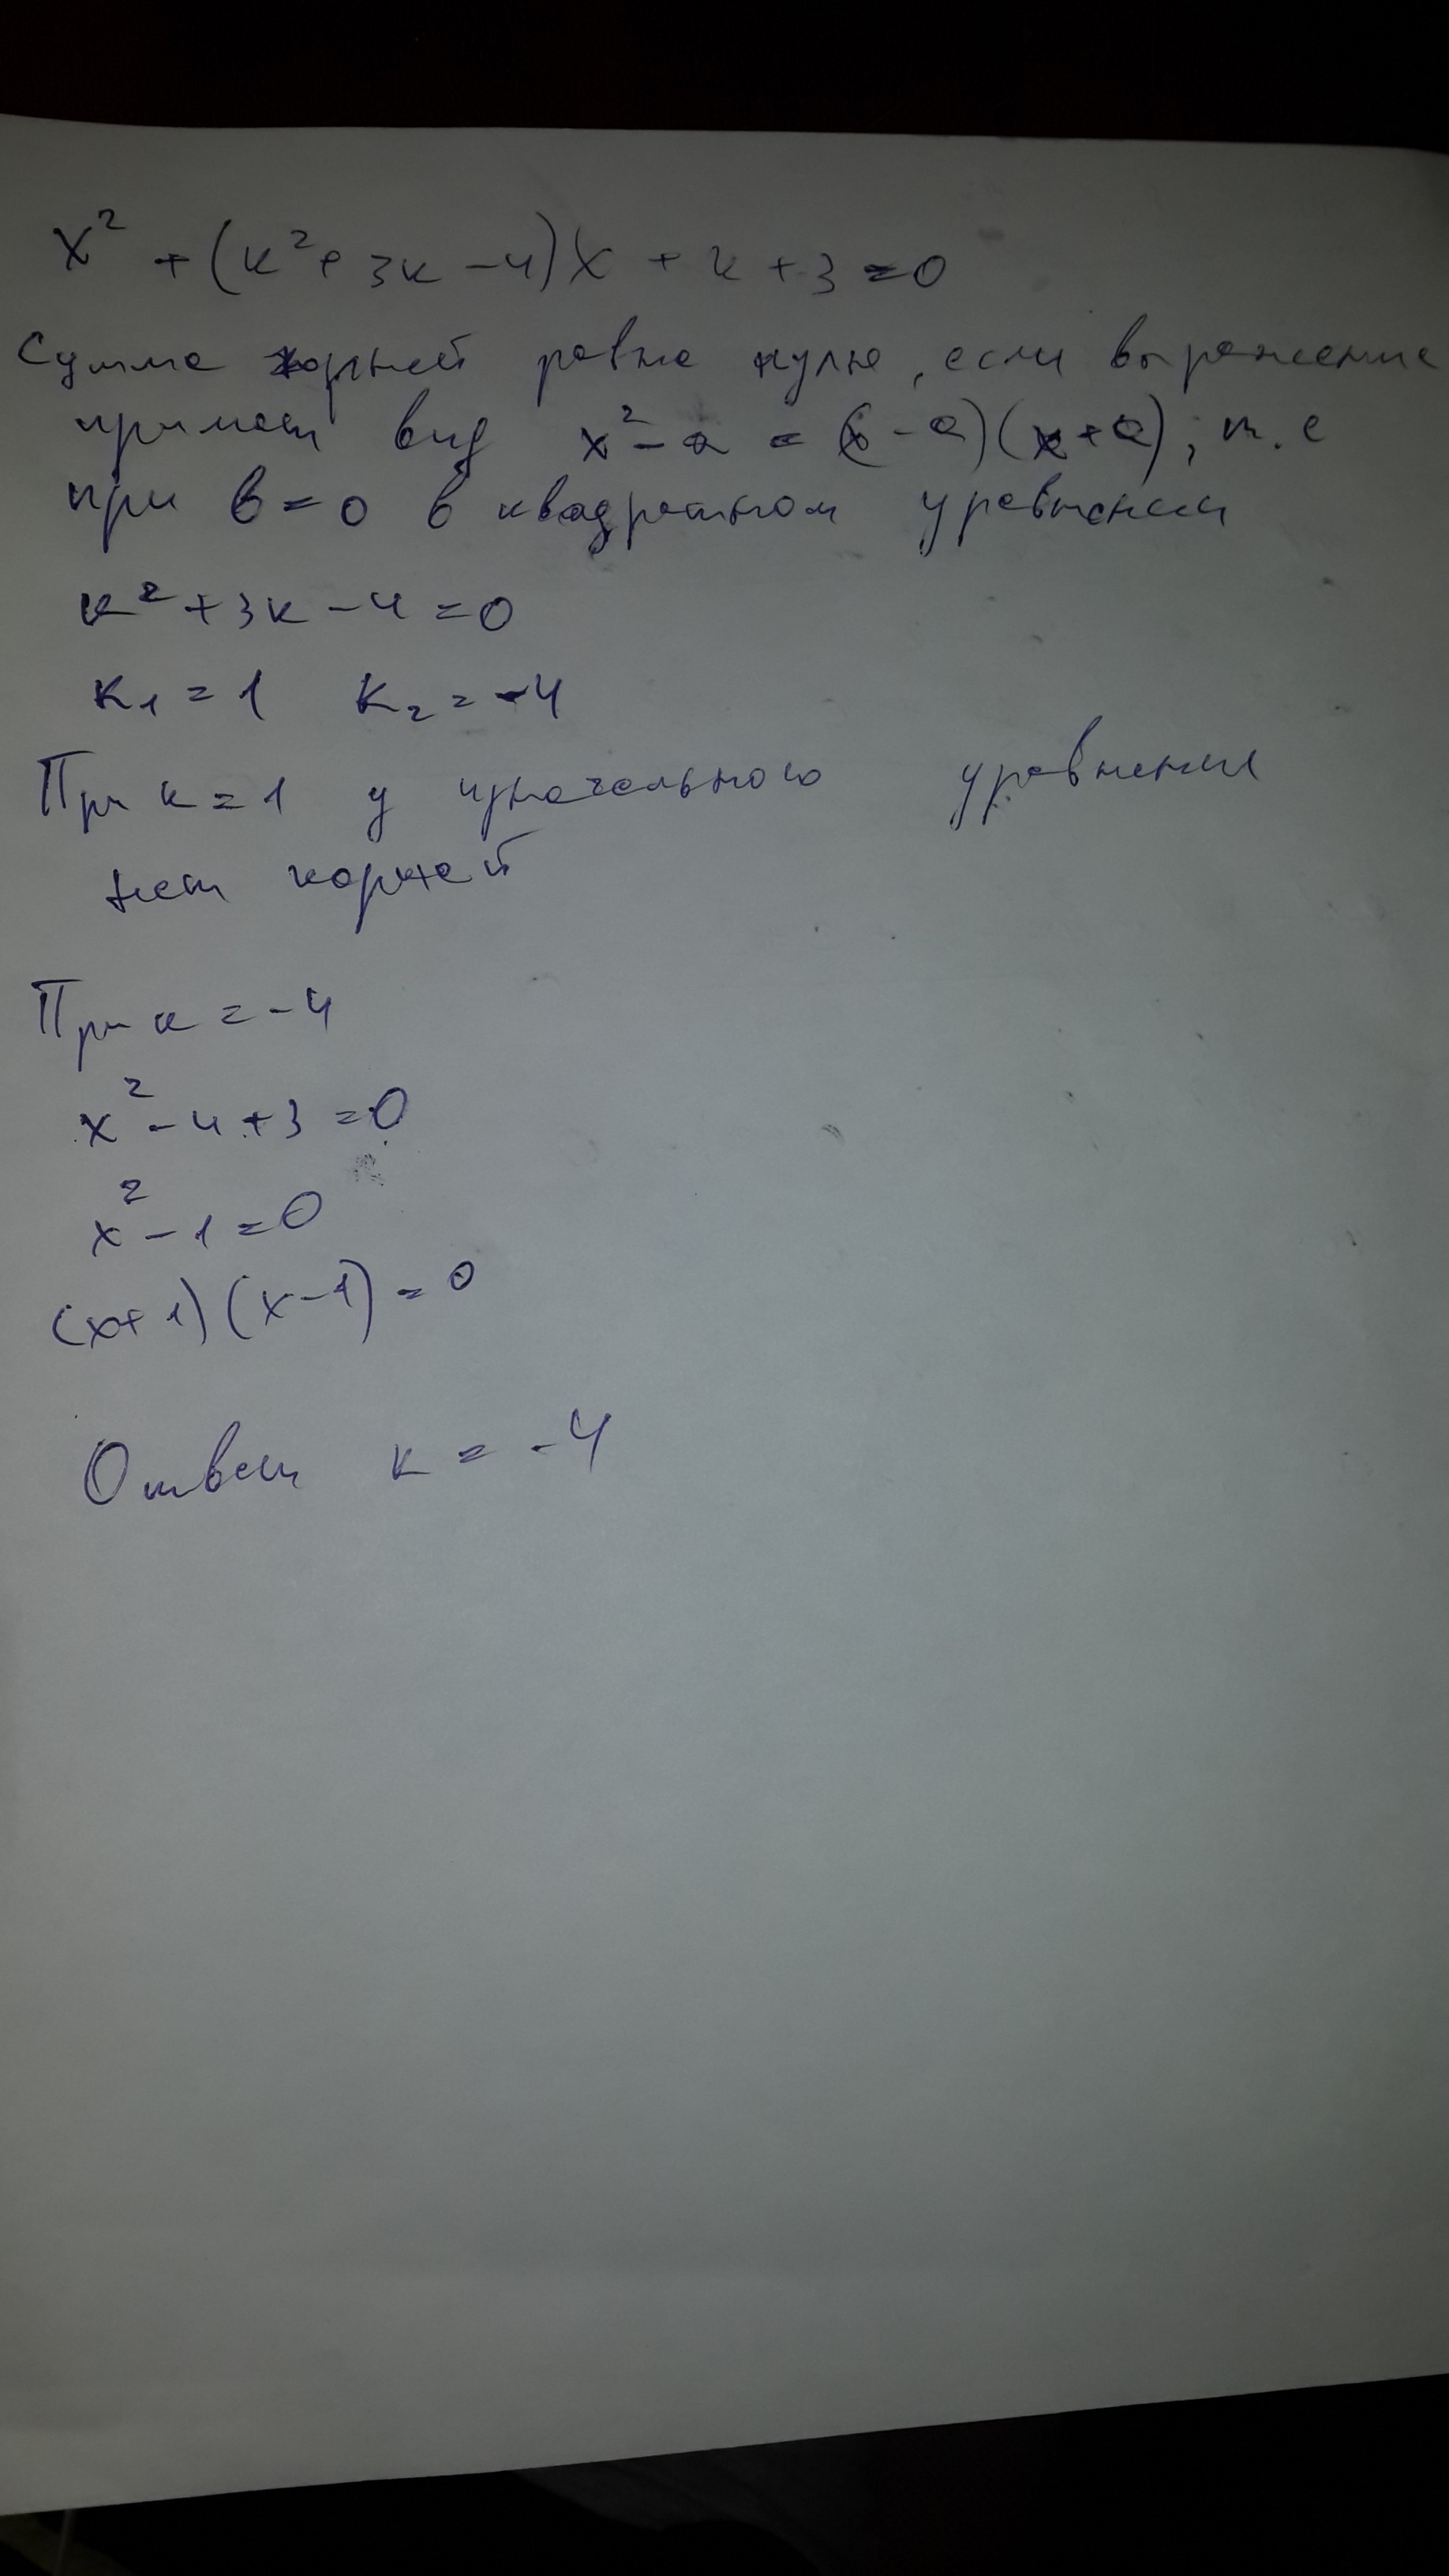 x² + (k² + 3k - 4)x + k + 3 = 0
Сумма корней равна нулю, если выражение
примет вид x² - a = (x - a)(x + a); т.е
при b = 0 в квадратном уравнении
k² + 3k - 4 = 0
k₁ = 1 k₂ = -4
При k = 1 у изначального уравнения
нет корней
При k = -4
x² - 4 + 3 = 0
x² - 1 = 0
(x + 1)(x - 1) = 0
Ответ k = -4